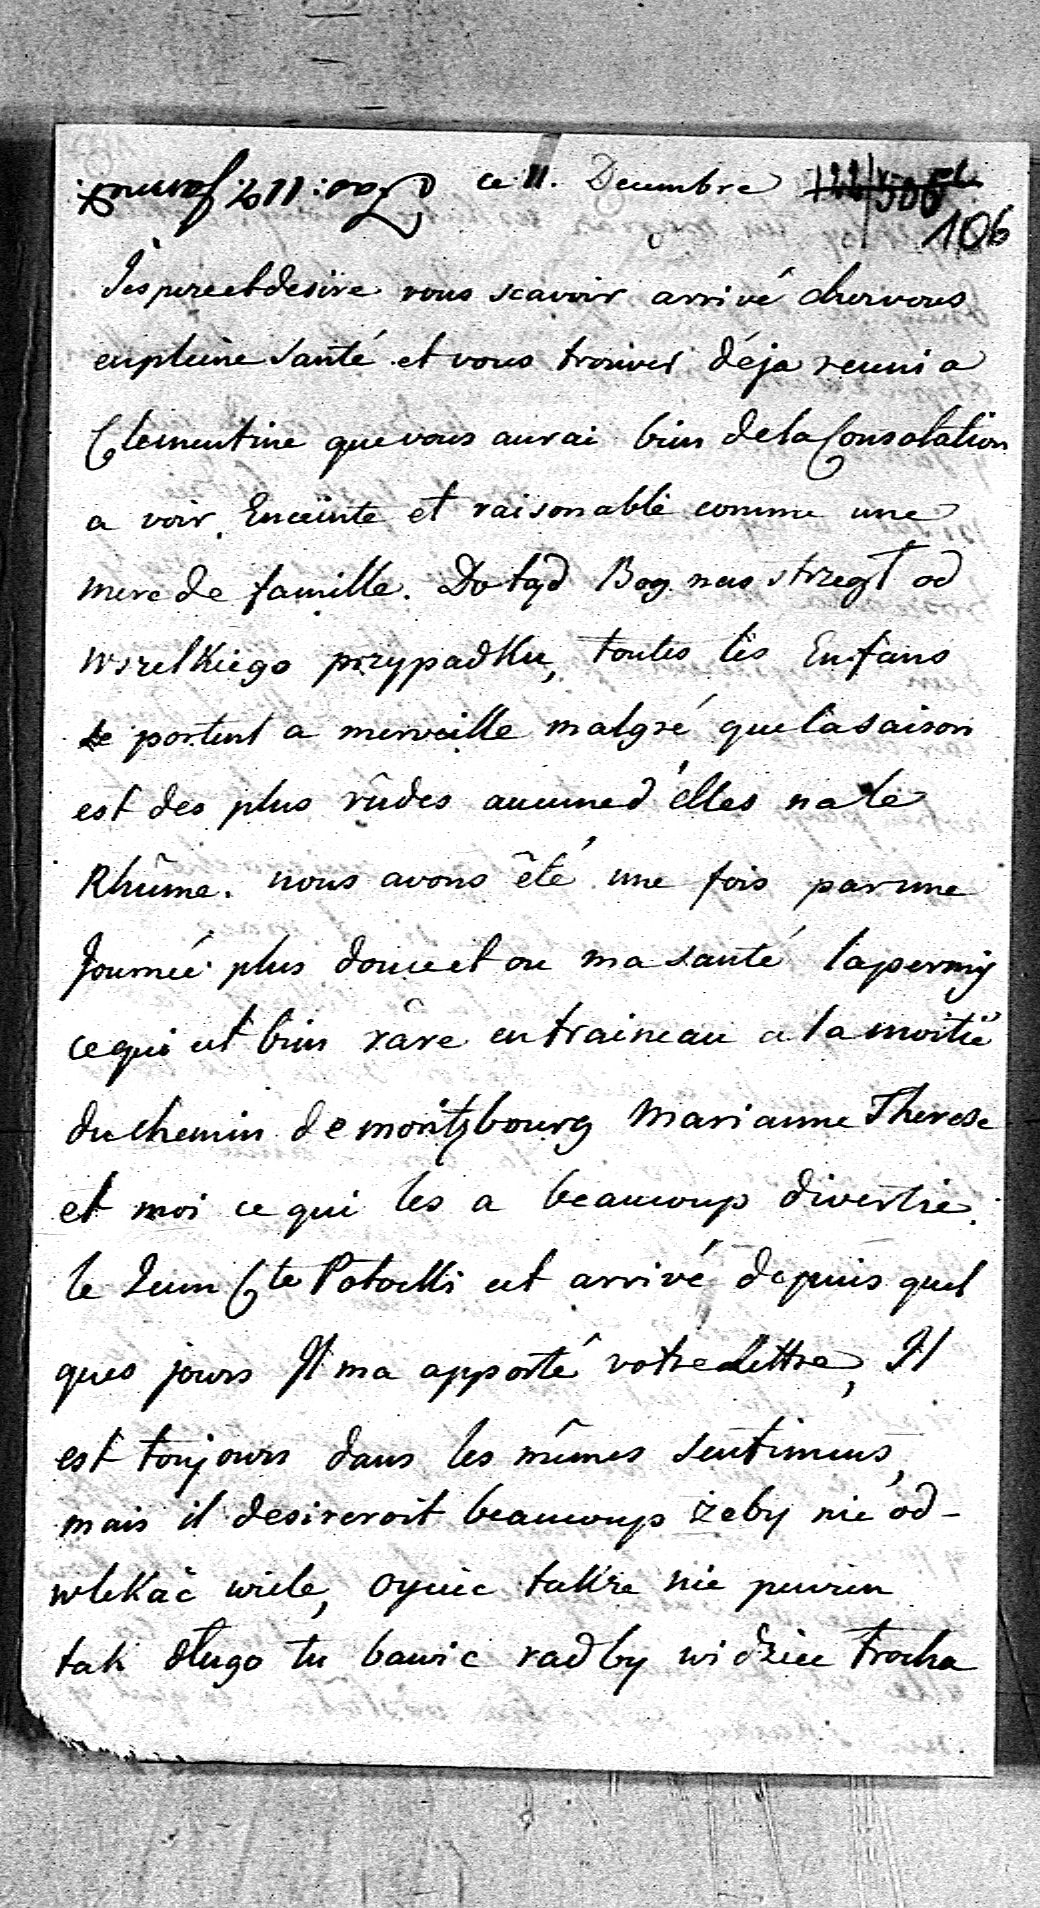 ce 11. Decembre
106
J'espere et desire vous scavoir arrivé chez vous
en pleine santé et vous trouver déja reuni a
Clementine que vous aurai bien de la Consolation
a voir Enceinte et raisonable comme une
mere de famille. Do tąd Bog nas strzegł od
wszelkiego przypadku, toutes les Enfans
se portent a merveille malgré que la saison
est des plus rûdes aucune d'elles na le
Rhûme. nous avons êté une fois par une
Journée plus douce et ou ma santé la permis
ce qui est bien râre en traineau a la moitié
du chemin de moritzbourg Marianne Therese
et moi ce qui les a beaucoup divertie.
le Jeun Cte Potocki est arrivé depuis quel
ques jours Il ma apporté votre lettre, Il
est toujours dans les mêmes sentimens,
mais il desireroit beaucoup żeby nie od-
wlekać wiele, oyciec takze nie pewien
tak długo tu bawic radby widziec trocha